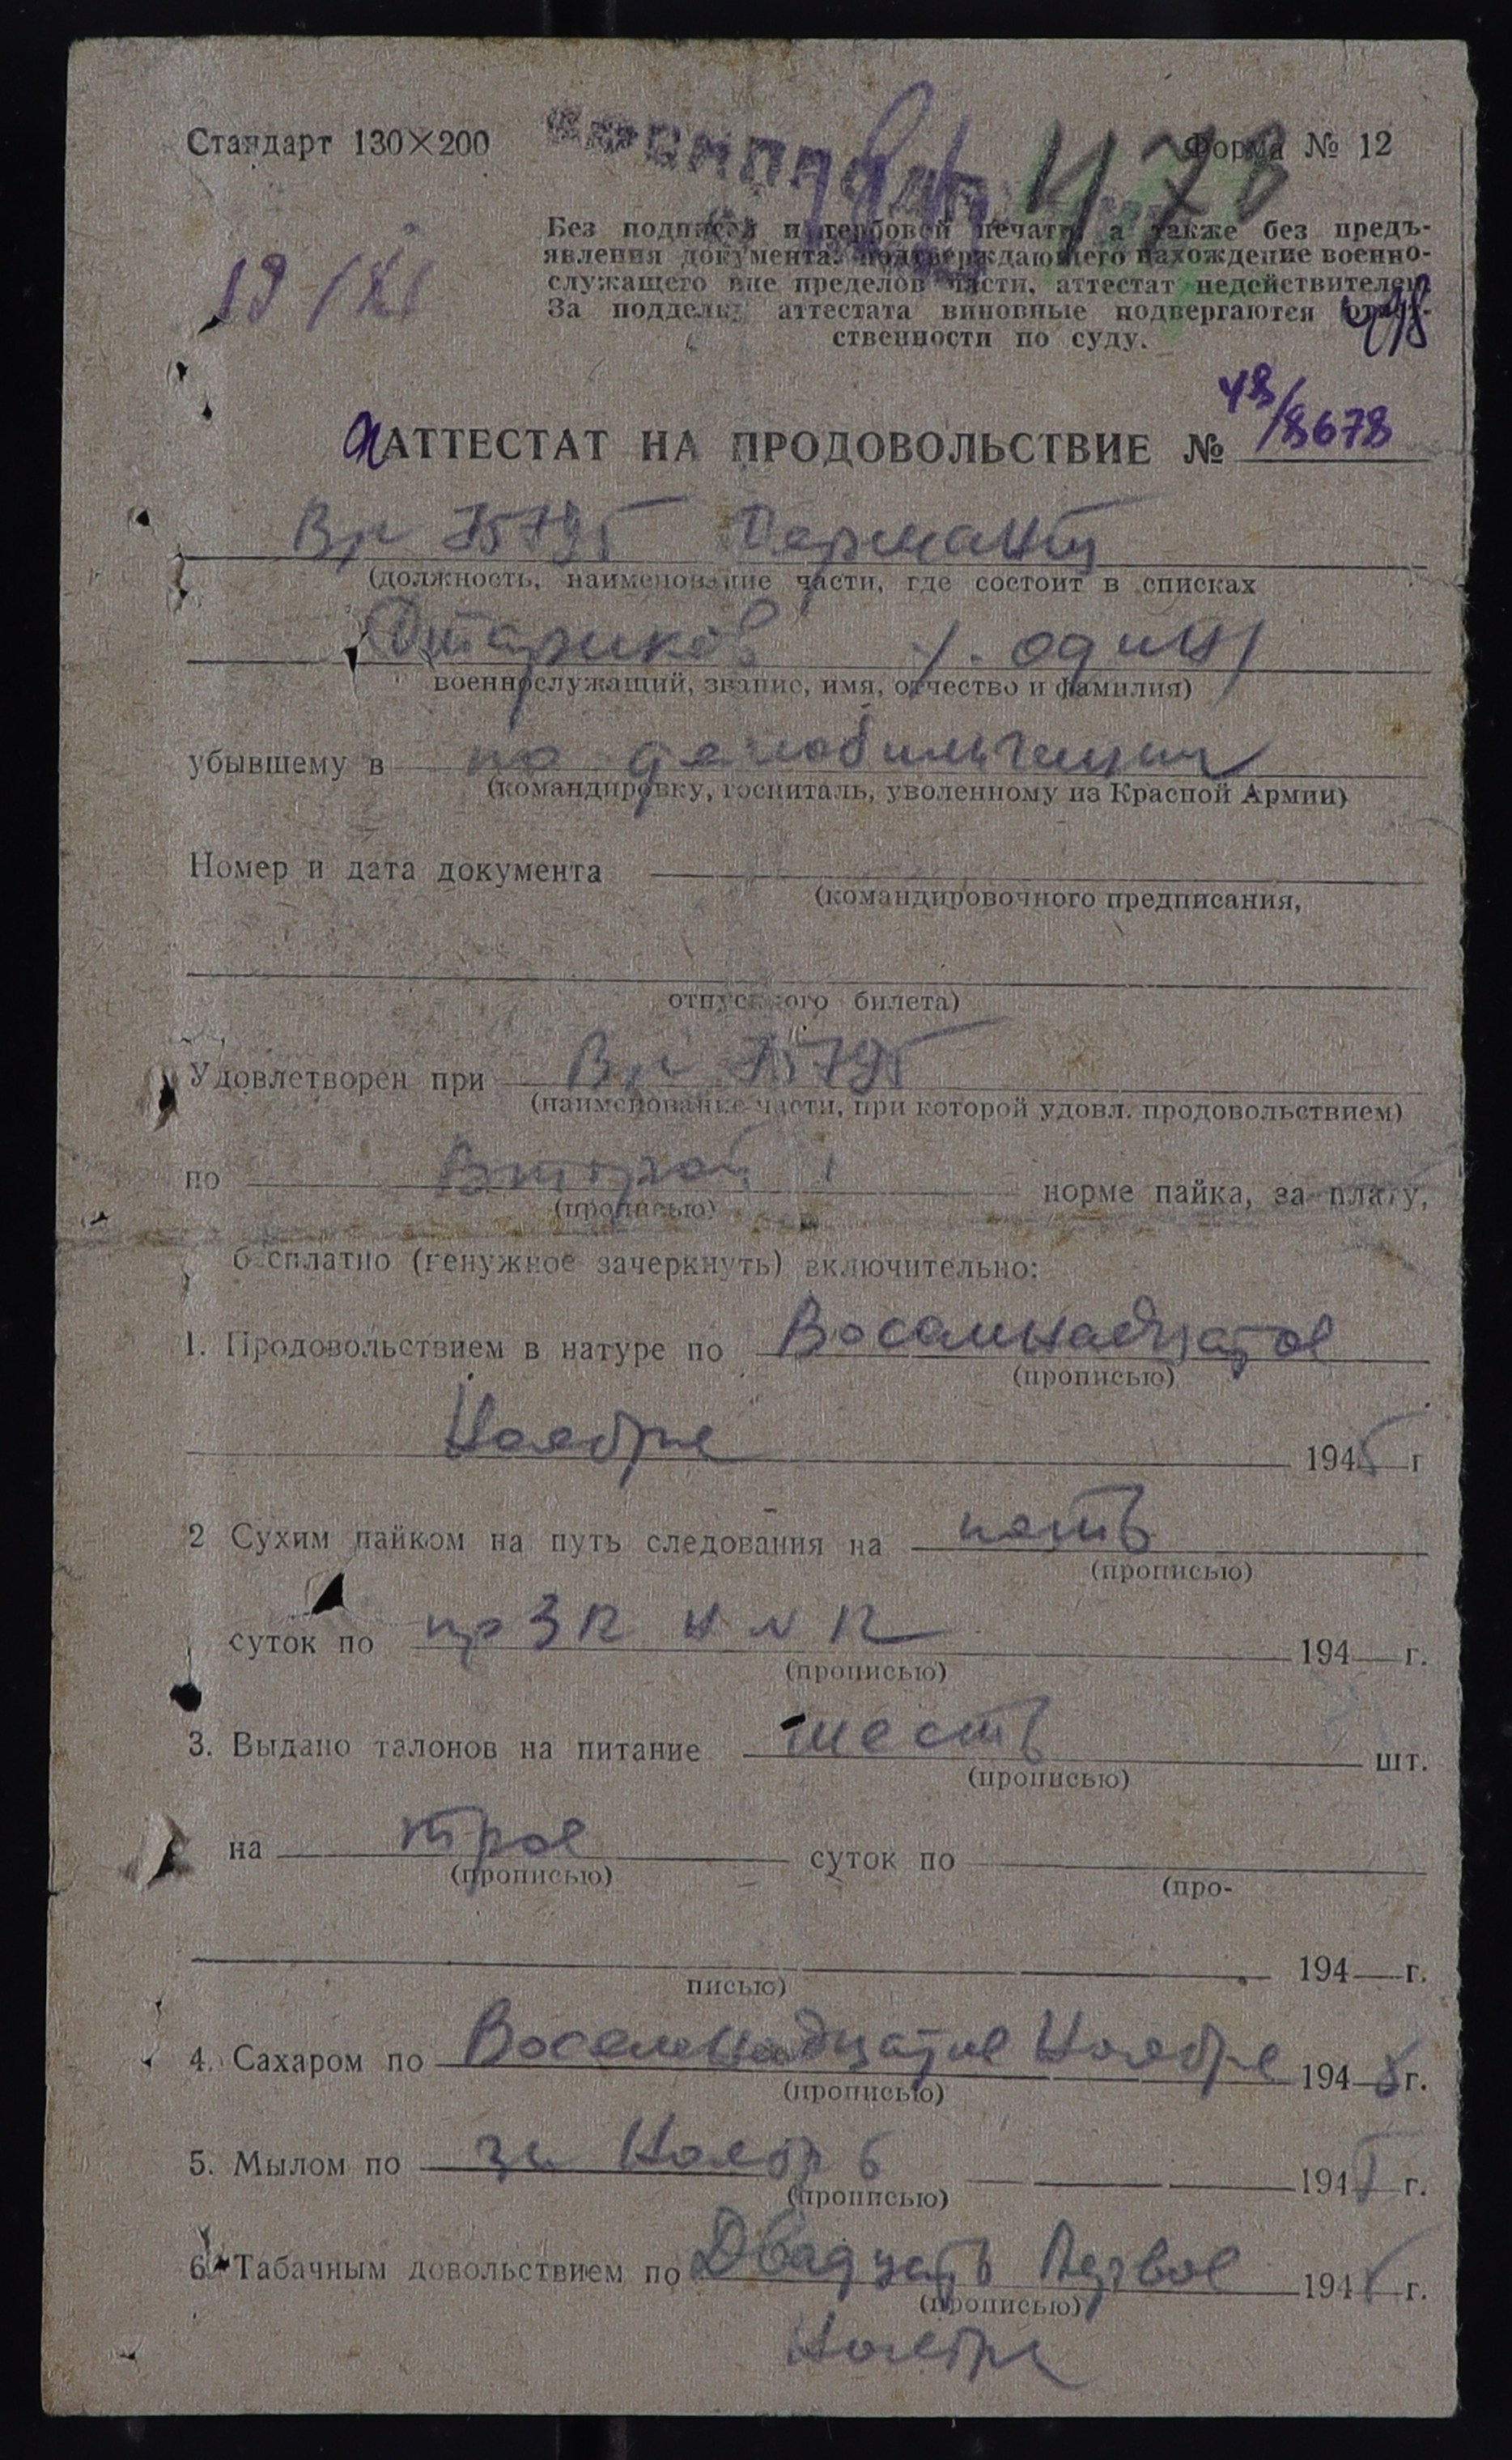 Стандарт 130×200
Форма № 12
478
19/XI
Без подписей и гербовой печати, а также без предъ-
явления документа, подтверждающего нахождение военно-
служащего вне пределов части, аттестат недействителен.
За подделку аттестата виновные подвергаются ответ-
ственности по суду.
АТТЕСТАТ НА ПРОДОВОЛЬСТВИЕ № 48/8678
Вр 75795 Сержант
(должность, наименование части, где состоит в списках
1. один
военнослужащий, звание, имя, отчество и фамилия)
убывшему в по демобилизации
(командировку, госпиталь, уволенному из Красной Армии)
Номер и дата документа
(командировочного предписания,
отпускного билета)
Удовлетворен при Вр 75795
(наименование части, при которой удовл. продовольствием)
по Второй норме пайка, за плату,
(прописью)
бесплатно (ненужное зачеркнуть) включительно:
1. Продовольствием в натуре по Восемнадцатое
(прописью)
Ноября 1945 г
2 Сухим пайком на путь следования на пять
(прописью)
суток по пр ЗК 194 г.
(прописью)
3. Выдано талонов на питание шесть шт.
(прописью)
на трое суток по
(прописью) (про-
194 г.
писью)
4. Сахаром по Восемнадцатое Ноября 1945 г.
(прописью)
5. Мылом по за Ноябрь 1945 г.
(прописью)
6. Табачным довольствием по Двадцать Первое 1945 г.
(прописью)
Ноября